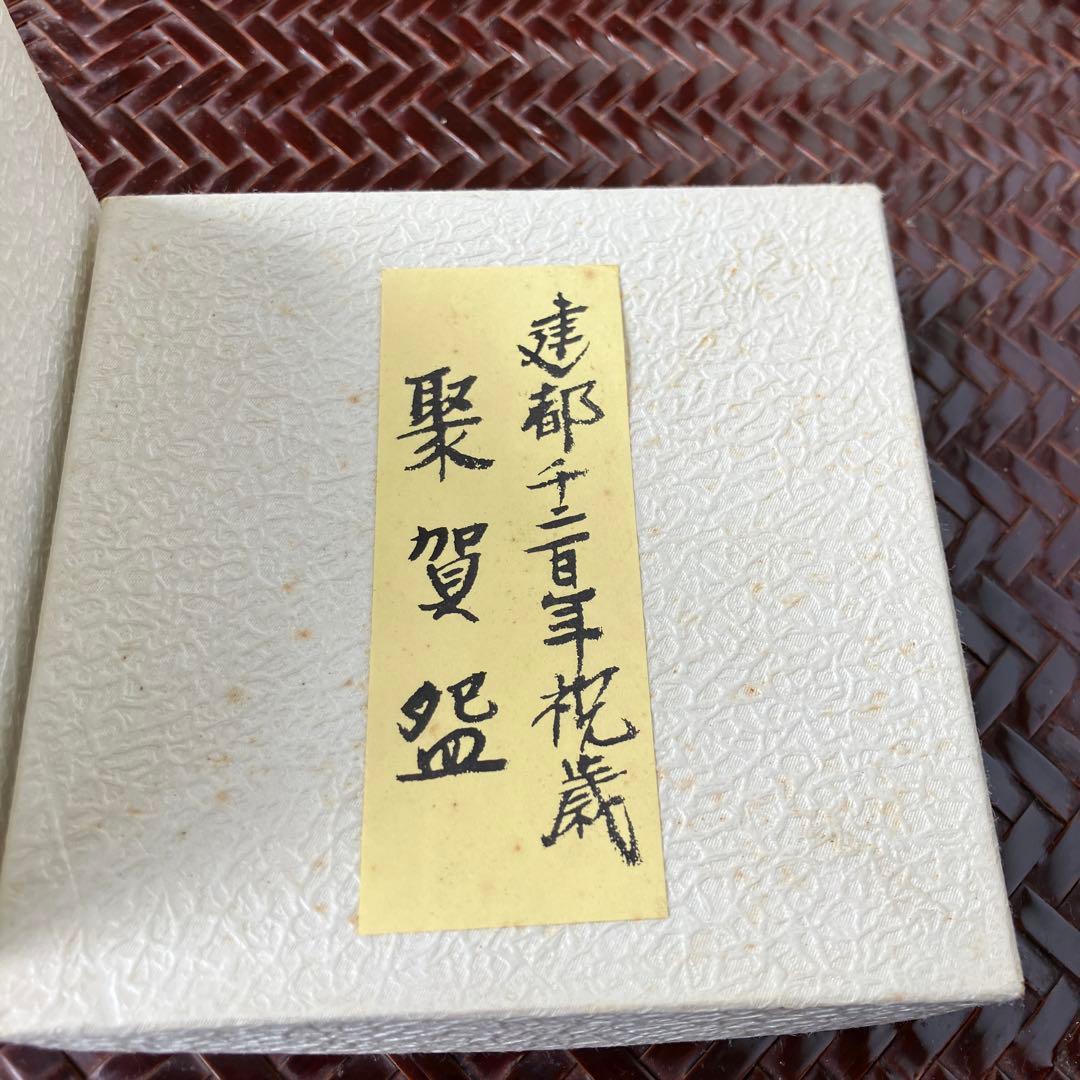 建都千二百年祝歳
聚賀盌